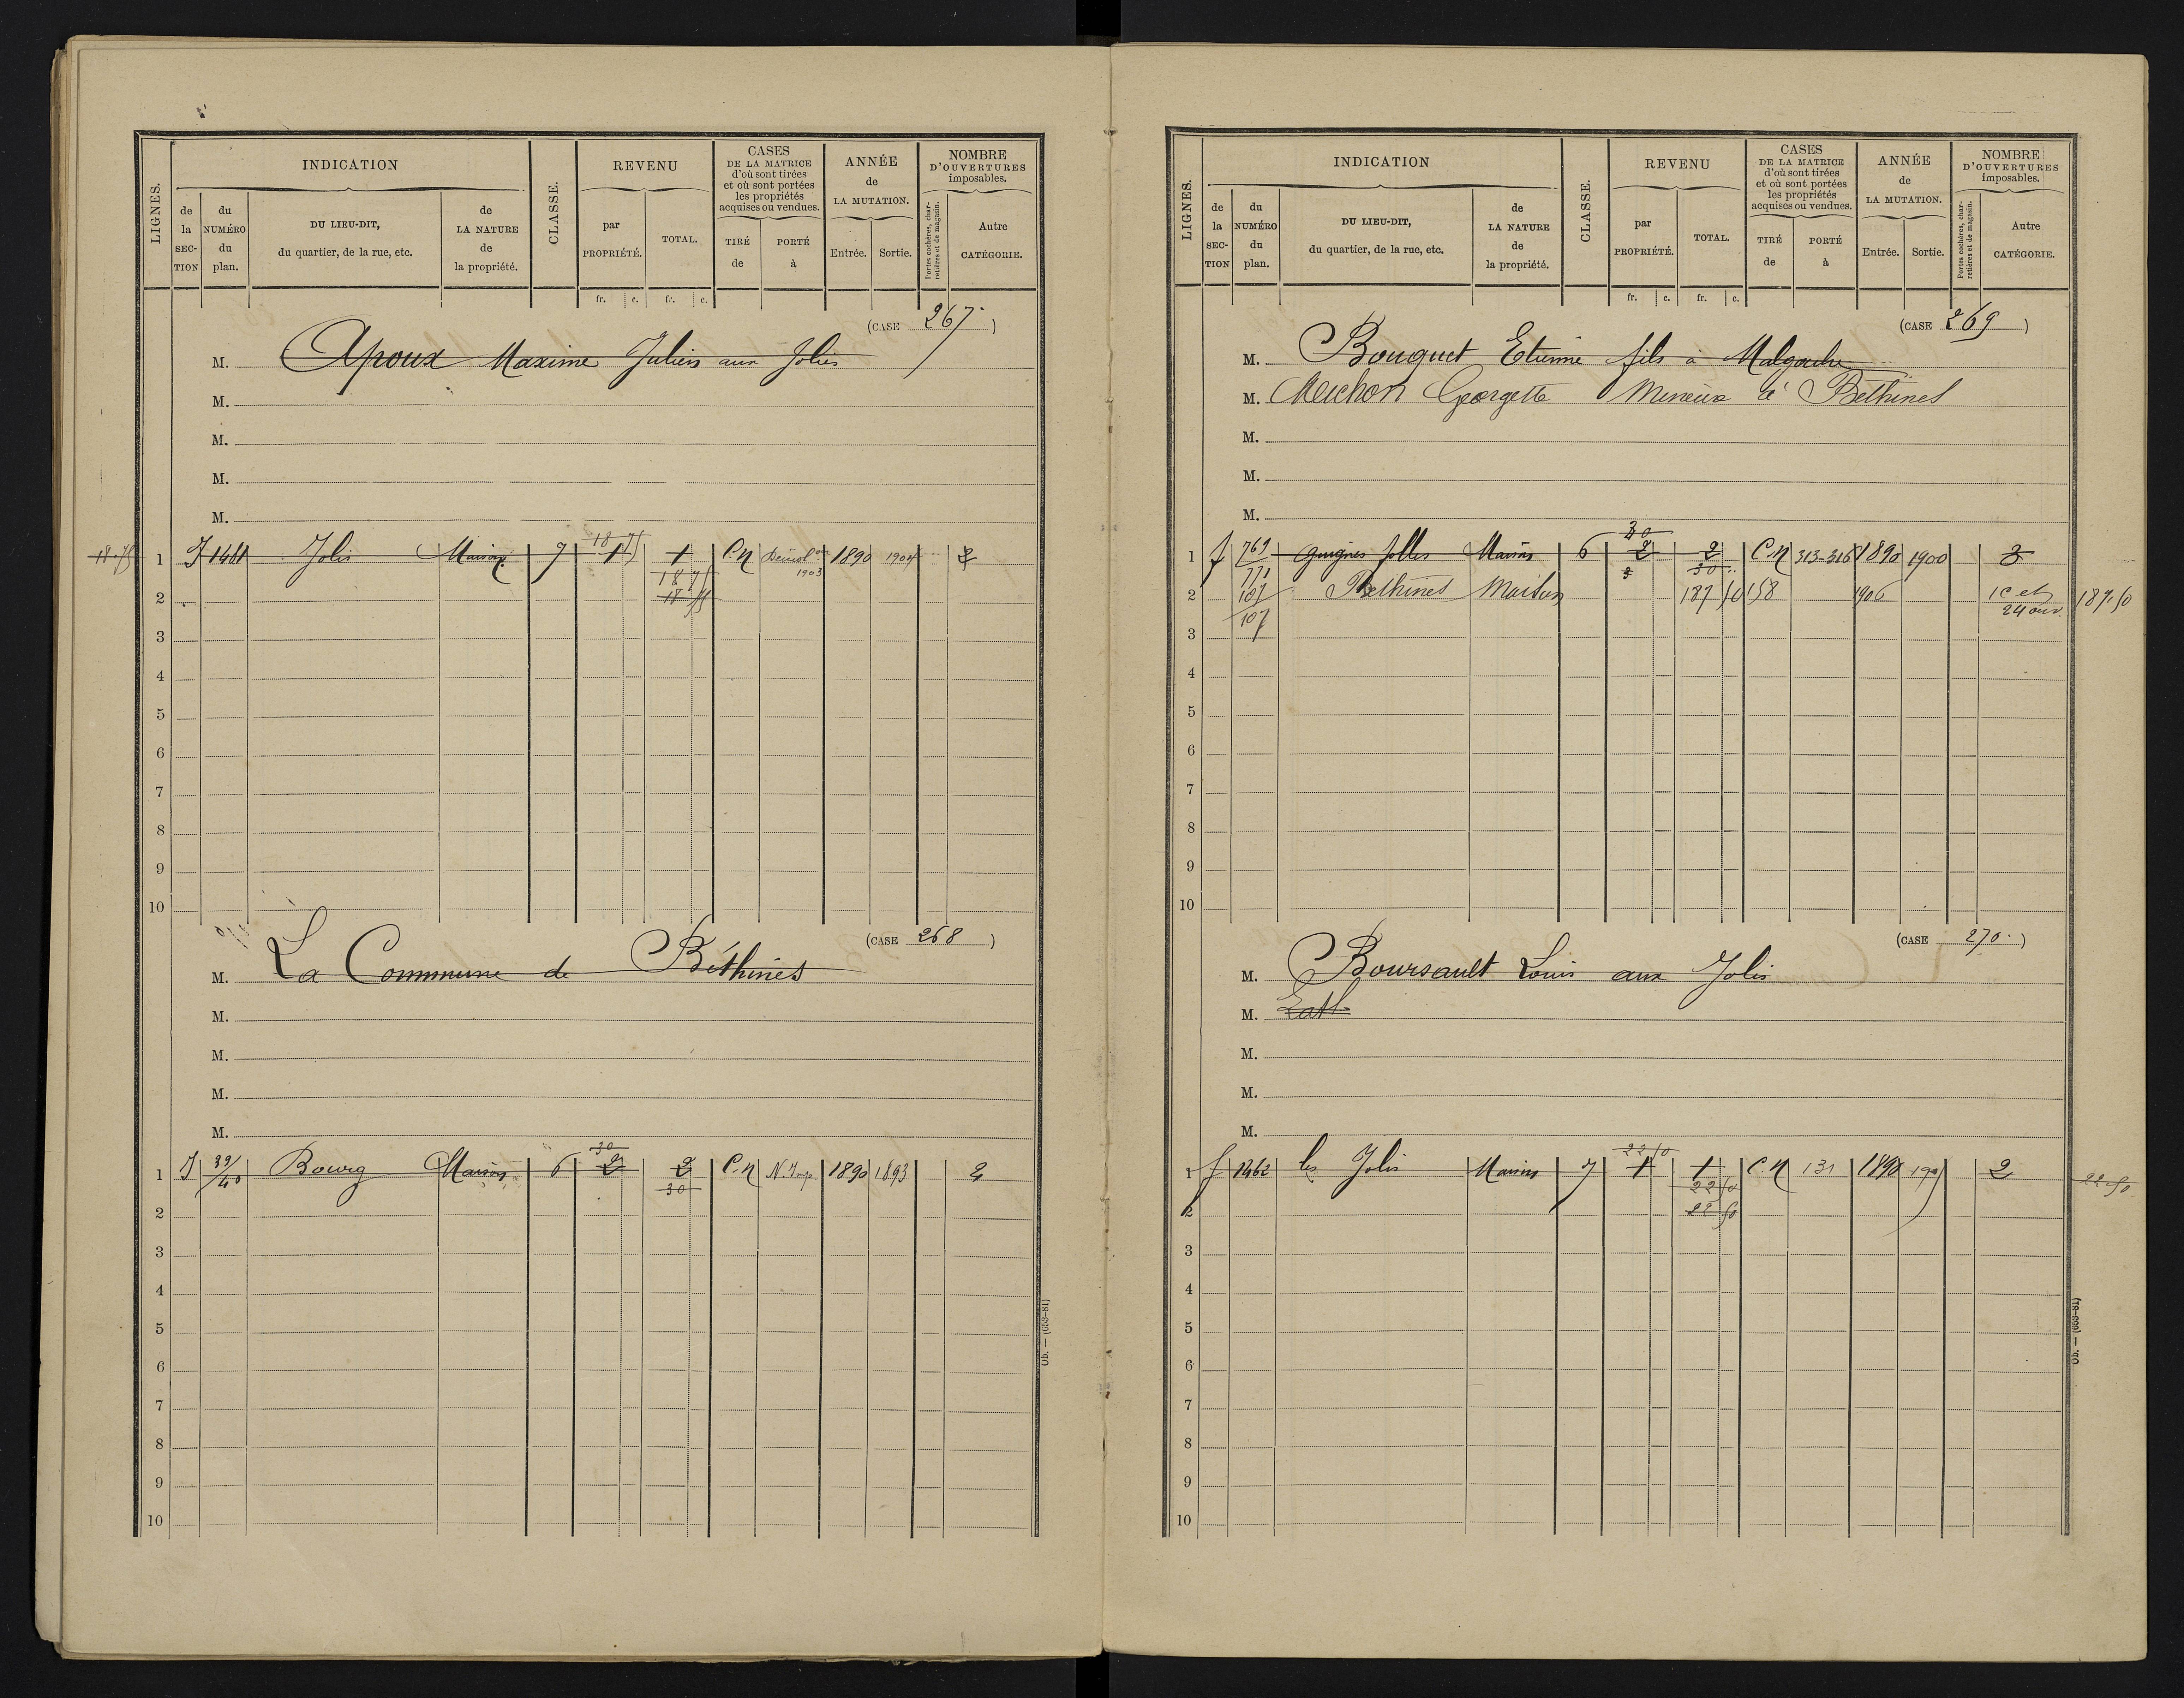 LIGNES.
INDICATION
de la SECTION
du NUMÉRO du plan.
DU LIEU-DIT, du quartier, de la rue, etc.
de LA NATURE de la propriété.
CLASSE.
REVENU
par PROPRIÉTÉ.
TOTAL.
fr. c. fr. c.
CASES DE LA MATRICE d'où sont tirées et où sont portées les propriétés acquises ou vendues.
TIRÉ de
PORTÉ à
ANNÉE de LA MUTATION.
Entrée. Sortie.
NOMBRE D'OUVERTURES imposables.
Portes cochères, charretières et de magasin.
Autre CATÉGORIE.
(CASE 267)
M. Apoux Maxime Julien aux Jolis
M.
M.
M.
M.
18 75
18.75 1 J 1461 Jolis Maison 7 1 1 C.N Démol on 1903 1890 1904 2
18 75
2 18 75
3
4
5
6
7
8
9
10
(CASE 268)
M. La Commune de Béthines
M.
M.
M.
M.
30
1 J 39/40 Bourg Maison 6 2 2 C.N N. Imp 1890 1893 2
30
2
3
4
5
6
7
8
9
10
Ob. — (653-81)
LIGNES.
INDICATION
de la SECTION
du NUMÉRO du plan.
DU LIEU-DIT, du quartier, de la rue, etc.
de LA NATURE de la propriété.
CLASSE.
REVENU
par PROPRIÉTÉ.
TOTAL.
fr. c. fr. c.
CASES DE LA MATRICE d'où sont tirées et où sont portées les propriétés acquises ou vendues.
TIRÉ de
PORTÉ à
ANNÉE de LA MUTATION.
Entrée. Sortie.
NOMBRE D'OUVERTURES imposables.
Portes cochères, charretières et de magasin.
Autre CATÉGORIE.
(CASE 269)
M. Bouquet Etienne fils à Malgache
M. Georgette à Béthines
M.
M.
M.
30
1 J 769 Guignes folles Maison 6 2 2 C.N 313-316 1890 1900 3
771 3 30
2 107 Bethines Maison 187 50 158 1906 1 C et 24 ouv. 187.50
3 107
4
5
6
7
8
9
10
(CASE 270)
M. Boursault Louis aux Jolis
M.
M.
M.
M.
22 50
1 J 1462 les Jolis Maison 7 1 1 C.N 131 1890 190 2 22.50
22 50
2 22 50
3
4
5
6
7
8
9
10
Ob. — (653-81)